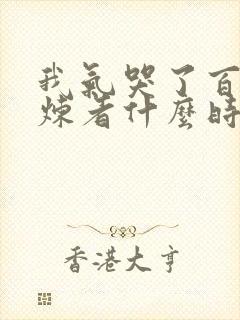 我氣哭了百
煉者什麼時
香港大亨